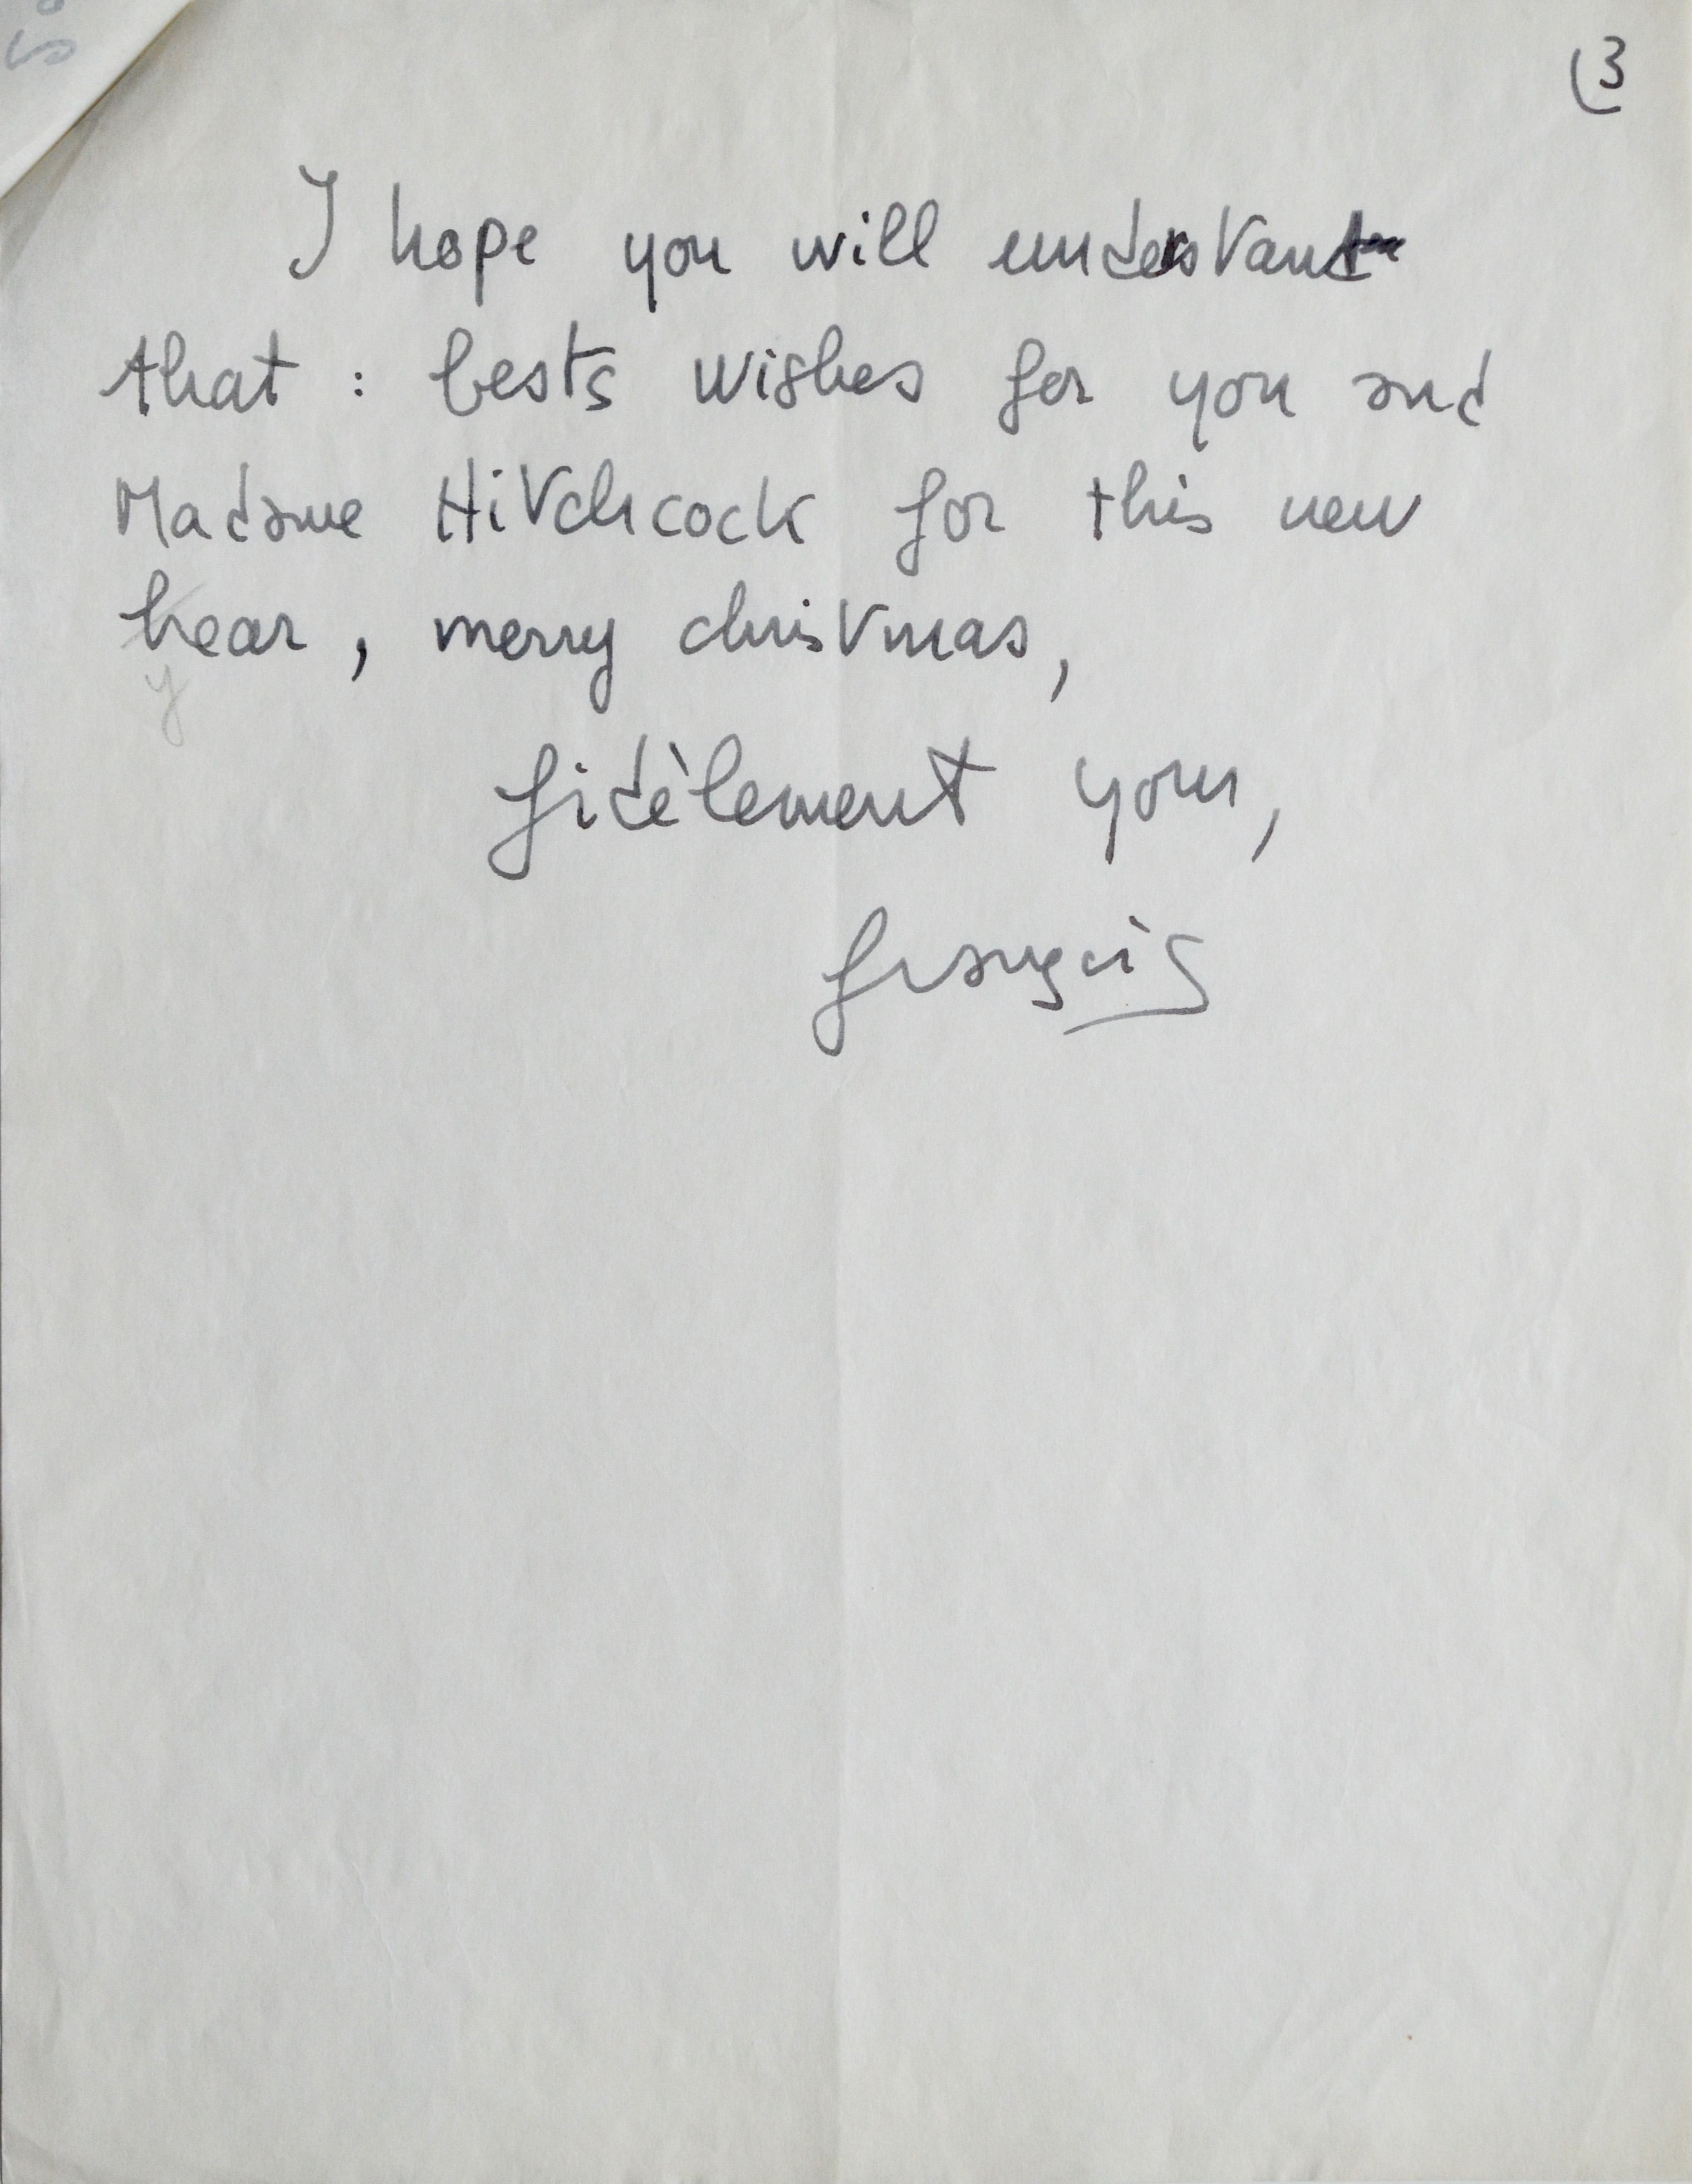 3
I hope you will understand
that : bests wishes for you and
Madame Hitchcock for this new
hear, merry christmas,
y
fidèlement your,
françois